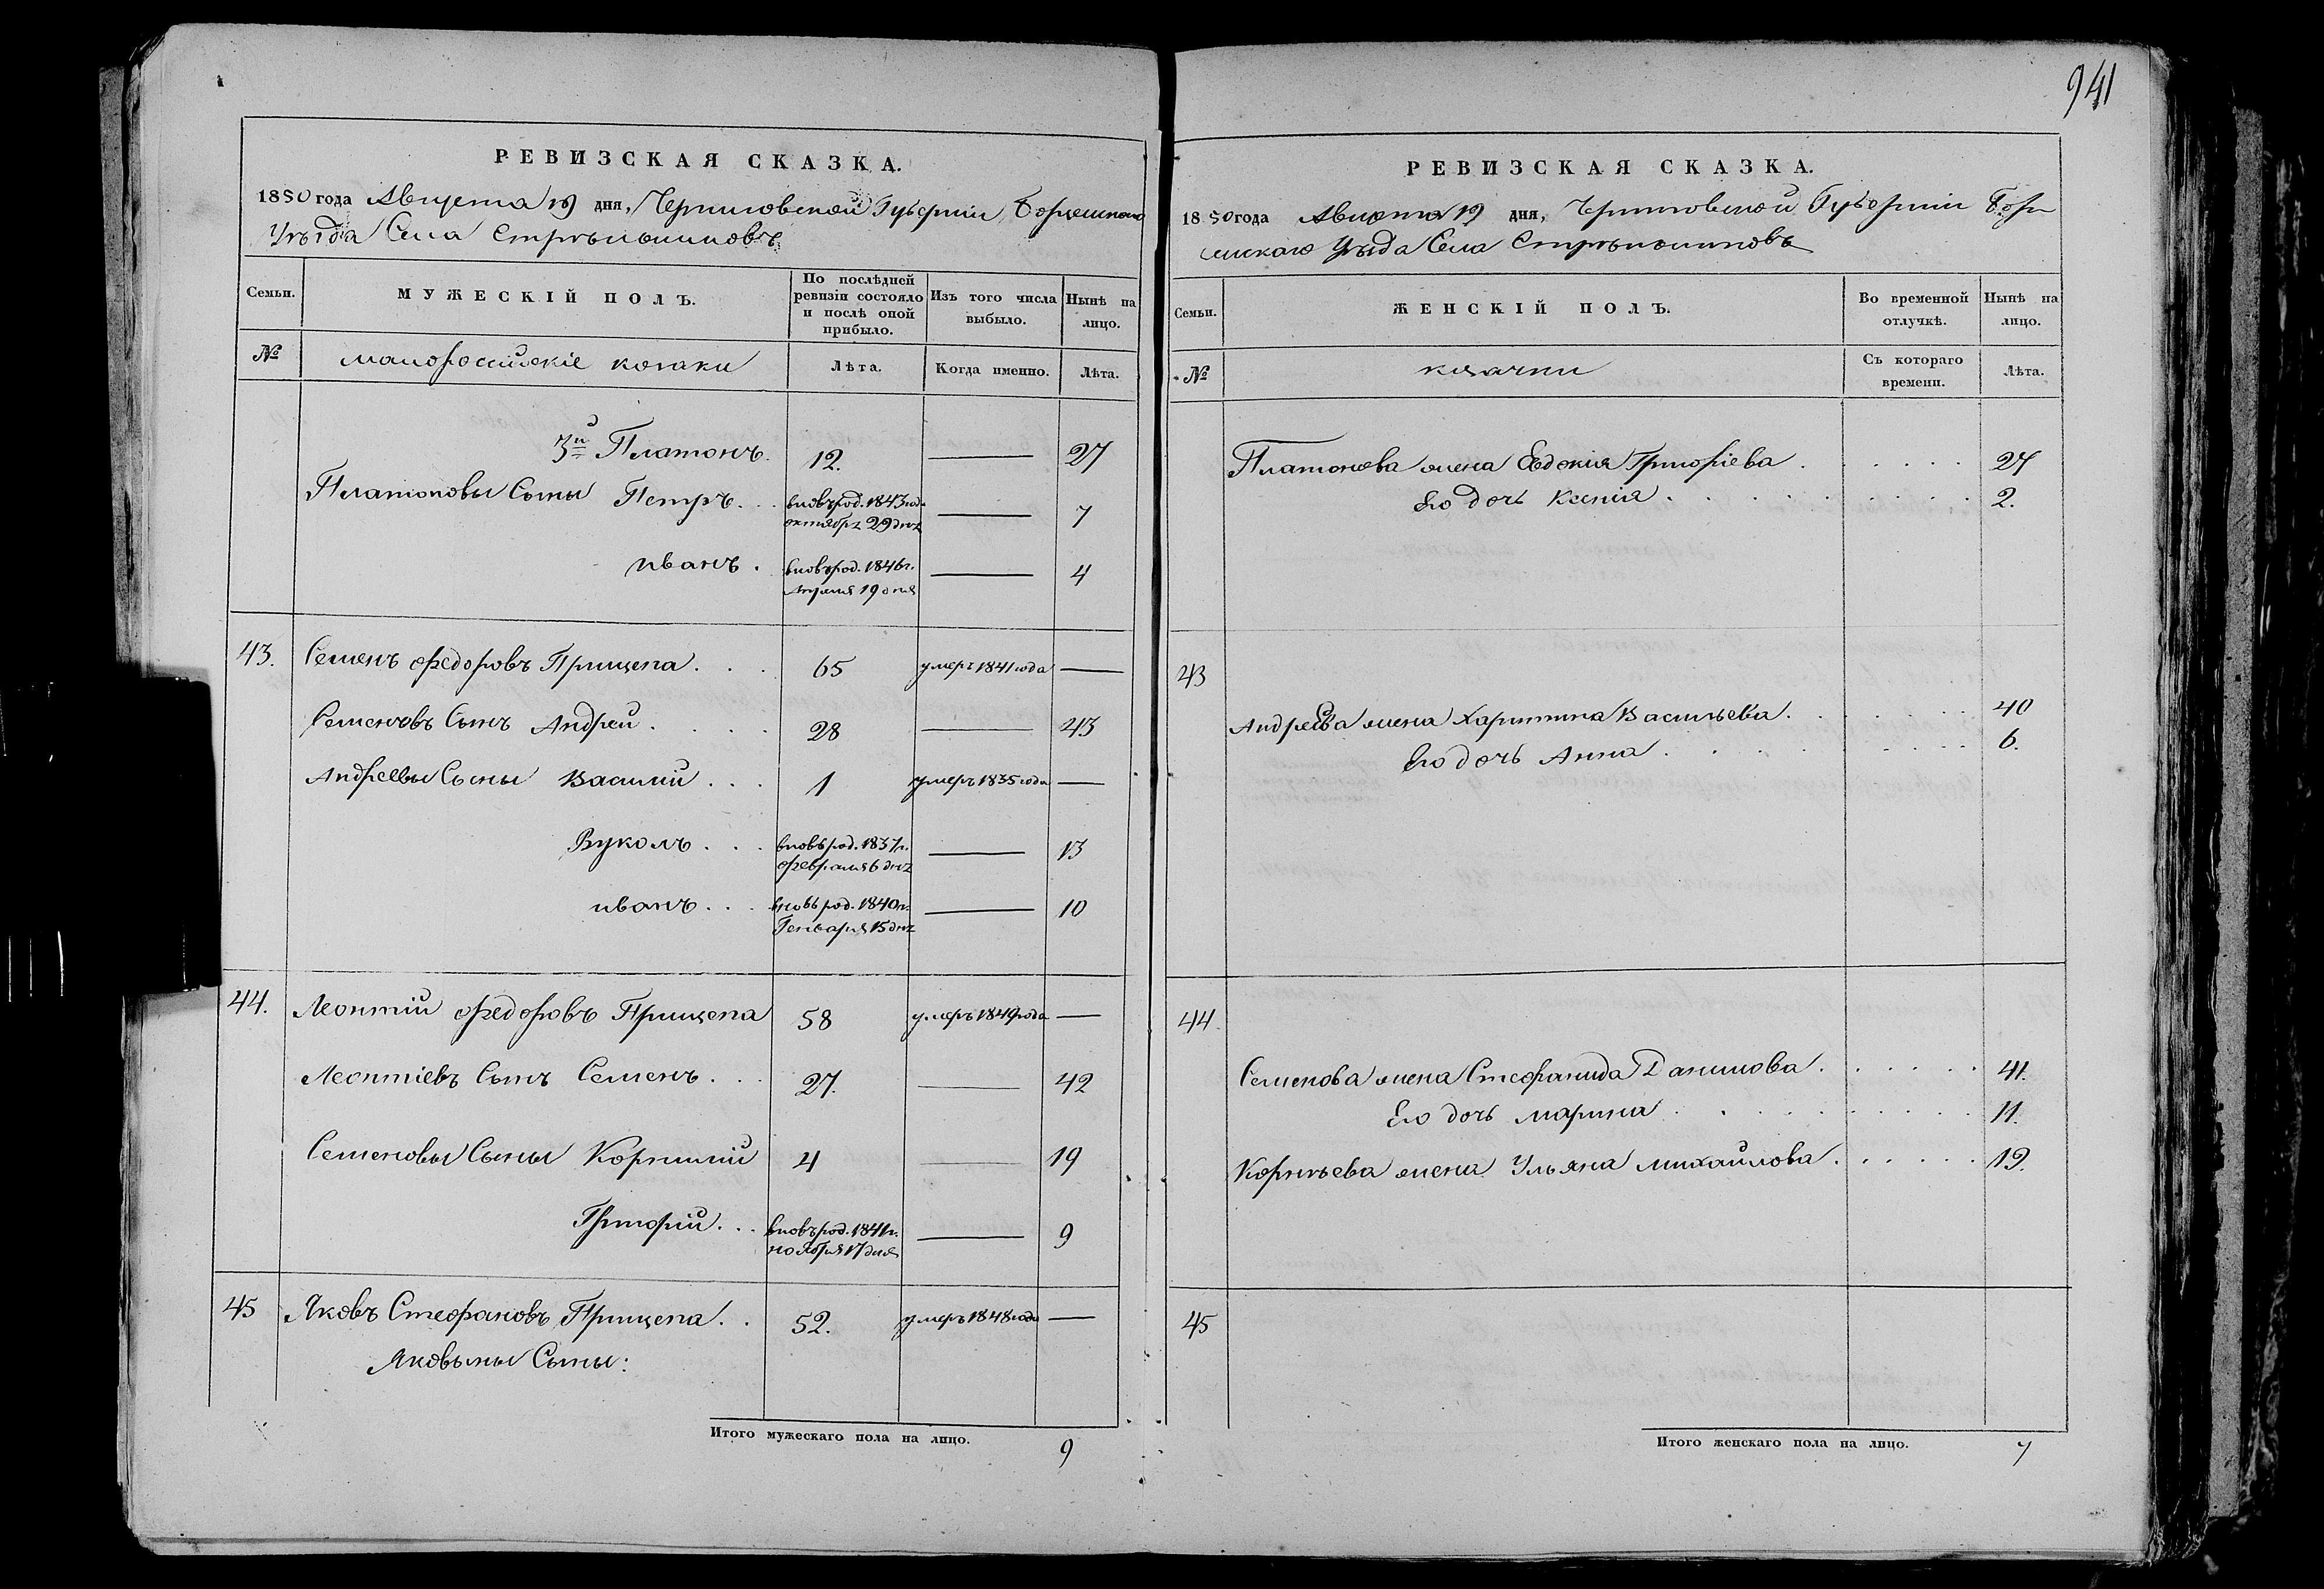 941
РЕВИЗСКАЯ СКАЗКА.
1850 года Августа 19 дня, Черниговской Губерніи, Борзенского
Уѣзда Села Стрѣльниковъ
Семьи. МУЖЕСКІЙ ПОЛЪ. По послѣдней ревизіи состояло и послѣ оной прибыло. Изъ того числа выбыло. Нынѣ на лицо.
№ малороссійскіе козаки Лѣта. Когда именно. Лѣта.
3й Платонъ. 12. 27
Платоновы Сыны Петръ вновь род. 1843 года октября 29 дня 7
иванъ вновь род. 1846 г. Апреля 19 дня 4
43. Семенъ Федоровъ Прищепа 65 умеръ 1841 года
Семеновъ Сынъ Андрей 28 43
Андреевы Сыны Василий 1 умеръ 1835 года
Вуколъ вновь род. 1837 г. февраля 6 дня 13
иванъ вновь род. 1840 г. Генваря 15 дня 10
44. Леонтій Федоровъ Прищепа 58 умеръ 1849 года
Леонтіевъ Сынъ Семенъ 27. 42
Семеновы Сыны Корнилий 4 19
Григорій вновь род. 1841 г. ноября 17 дня 9
45 Яковъ Стефановъ Прищепа 52. умеръ 1848 года
Яковыны Сыны:
Итого мужескаго пола на лицо. 9
РЕВИЗСКАЯ СКАЗКА.
1850 года Августа 19 дня, Черниговской Губерніи Борзенскаго
Уѣзда Села Стрѣльниковъ
Семьи. ЖЕНСКІЙ ПОЛЪ. Во временной отлучкѣ. Нынѣ на лицо.
№ козачки Съ котораго времени. Лѣта.
Платонова жена Евдокія Григоріева 27
Его дочь Ксенія 2.
43
Андреева жена Харитина Васильева 40
Его дочь Анна 6.
44.
Семенова жена Стефанида Данилова 41.
Его дочь марина 11.
Корнѣева жена Ульяна михайлова 19.
45
Итого женскаго пола на лицо. 7